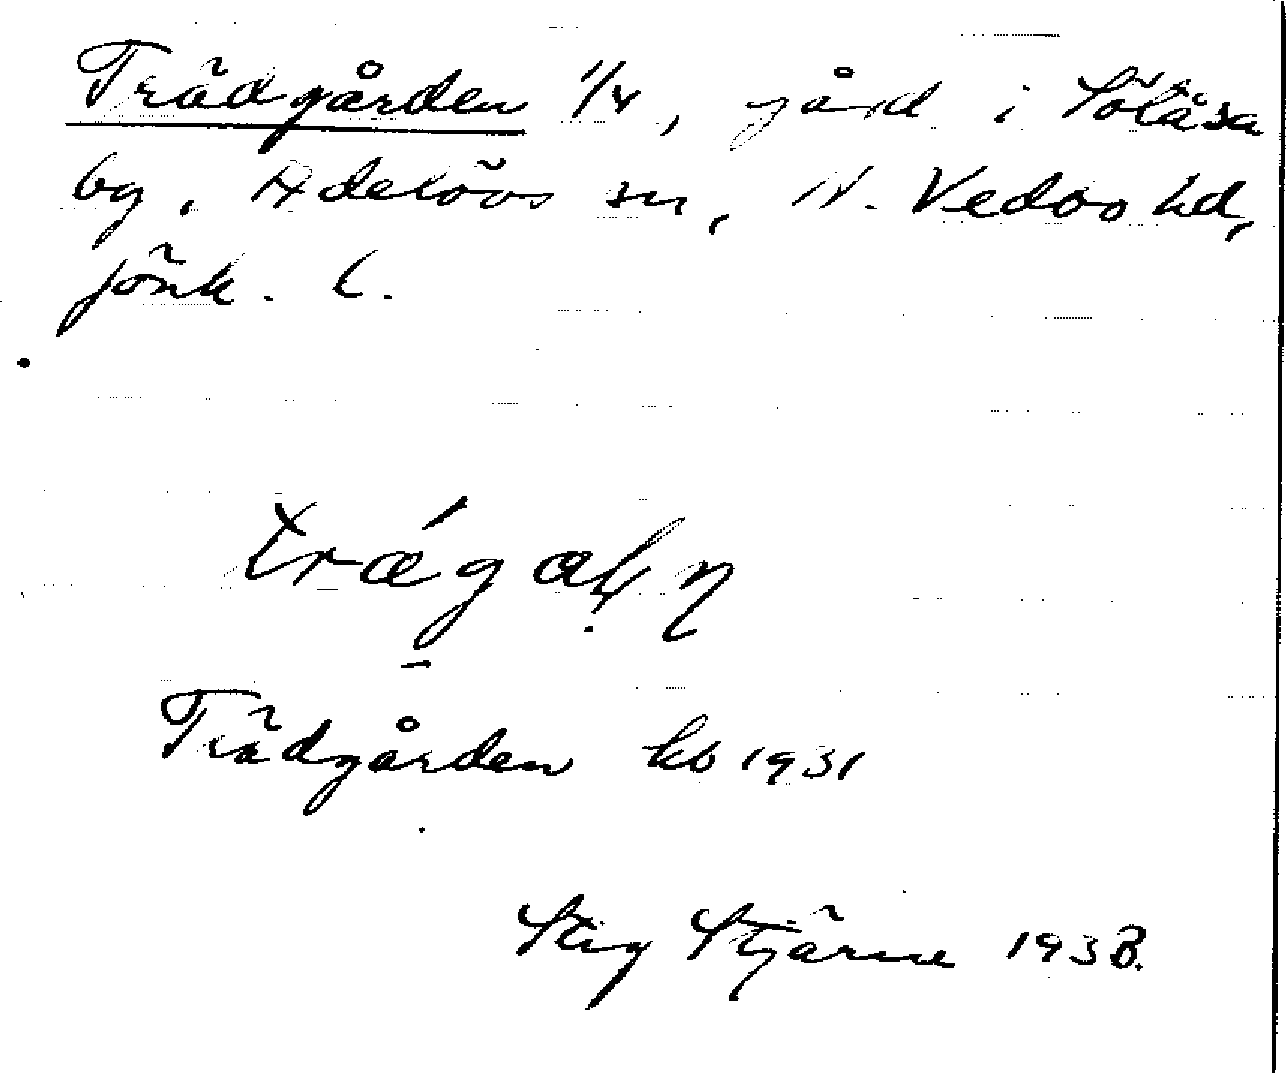 Trädgården 1/4, gård i Sötåsa
by, Adelövs sn, N. Vedbo hd,
Jönk. l.
Trädgården kb 1931
Stig Stjärne 1938.